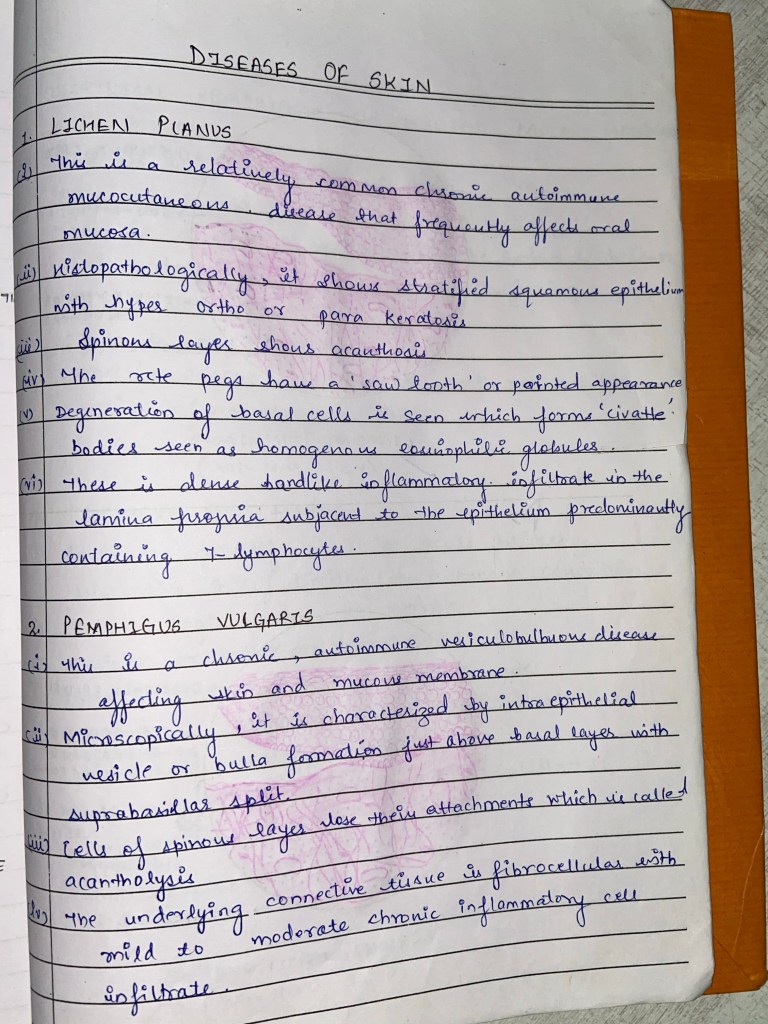 DISEASES OF SKIN
1. LICHEN PLANUS
(i) This is a relatively common chronic autoimmune
mucocutaneous. disease that frequently affects oral
mucosa.
(ii) Histopathologically, it shows stratified squamous epithelium
with hyper ortho or para keratosis
(iii) Spinous layer shows acanthosis
(iv) The rete pegs have a 'saw tooth' or pointed appearance
(v) Degeneration of basal cells is seen which forms 'civatte'
bodies seen as homogenous eosinophilic globules.
(vi) There is dense bandlike inflammatory. infiltrate in the
lamina propria subjacent to the epithelium predominantly
containing T-lymphocytes.
2. PEMPHIGUS VULGARIS
(i) This is a chronic, autoimmune vesiculobulbuous disease
affecting skin and mucous membrane.
(ii) Microscopically, it is characterized by intraepithelial
vesicle or bulla formation just above basal layer with
suprabasillar split.
(iii) Cells of spinous layer lose their attachments which is called
acantholysis
(iv) The underlying connective tissue is fibrocellular with
mild to moderate chronic inflammatory cell
infiltrate.